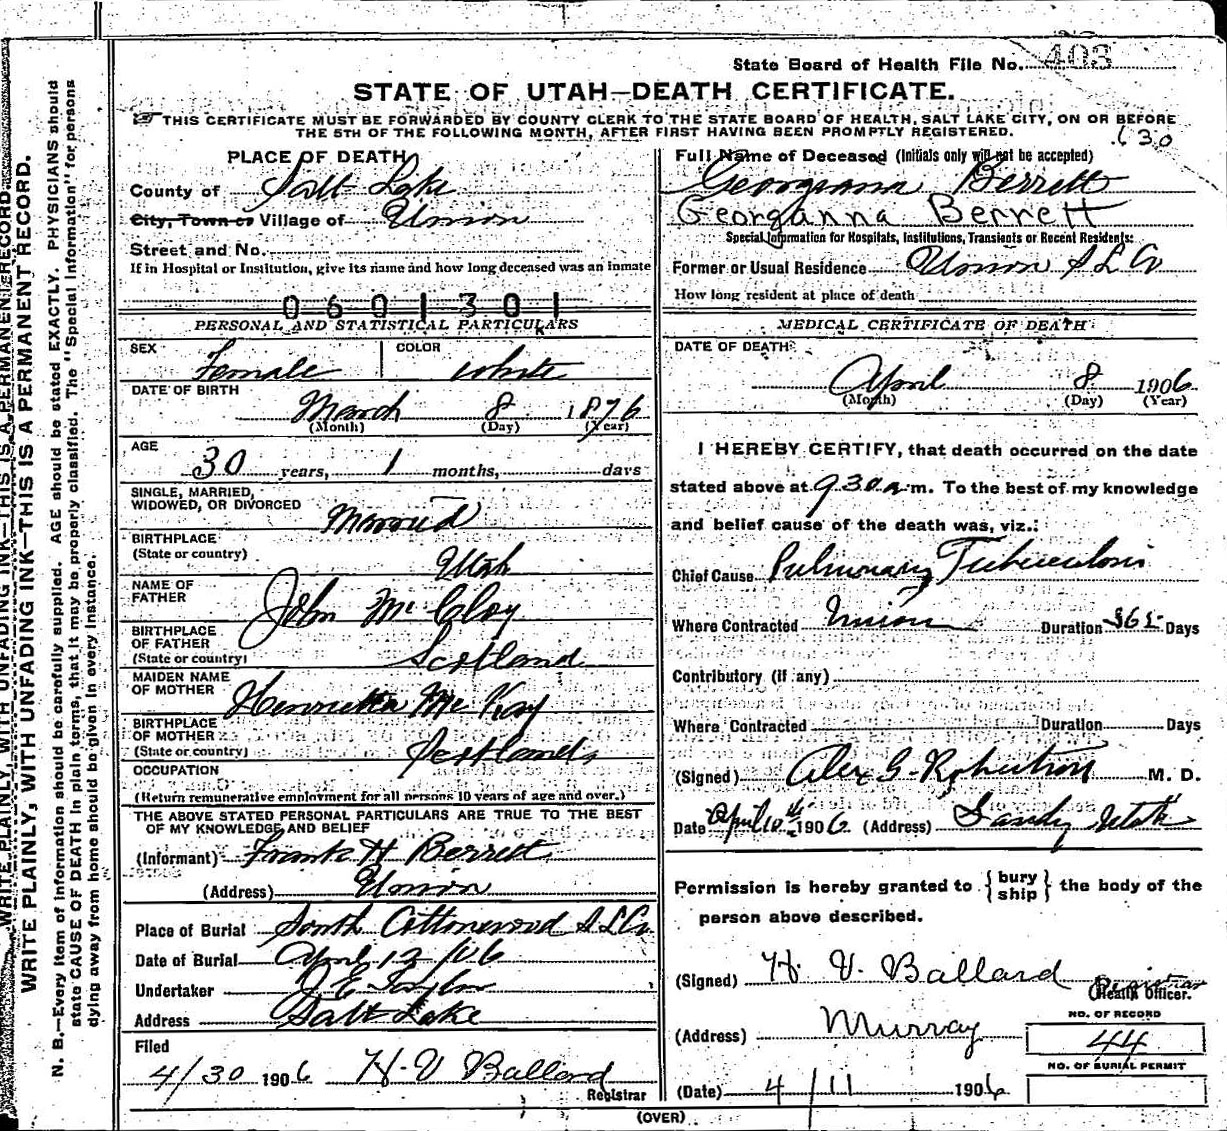 State Board of Health File No. 403
STATE OF UTAH—DEATH CERTIFICATE.
☞ THIS CERTIFICATE MUST BE FORWARDED BY COUNTY CLERK TO THE STATE BOARD OF HEALTH, SALT LAKE CITY, ON OR BEFORE
THE 5TH OF THE FOLLOWING MONTH, AFTER FIRST HAVING BEEN PROMPTLY REGISTERED.
630
WRITE PLAINLY, WITH UNFADING INK—THIS IS A PERMANENT RECORD.
WRITE PLAINLY, WITH UNFADING INK—THIS IS A PERMANENT RECORD.
N. B.—Every item of information should be carefully supplied. AGE should be stated EXACTLY. PHYSICIANS should
state CAUSE OF DEATH in plain terms, that it may be properly classified. The "Special Information" for persons
dying away from home should be given in every instance.
PLACE OF DEATH
County of Salt Lake
City, Town or Village of Union
Street and No.
If in Hospital or Institution, give its name and how long deceased was an inmate
0601301
PERSONAL AND STATISTICAL PARTICULARS
SEX Female COLOR White
DATE OF BIRTH
March 8 1876
(Month) (Day) (Year)
AGE
30 years, 1 months, days
SINGLE, MARRIED,
WIDOWED, OR DIVORCED Married
BIRTHPLACE
(State or country) Utah
NAME OF
FATHER John McCloy
BIRTHPLACE
OF FATHER
(State or country) Scotland
MAIDEN NAME
OF MOTHER Henrietta McKay
BIRTHPLACE
OF MOTHER
(State or country) Scotland
OCCUPATION
(Return remunerative employment for all persons 10 years of age and over.)
THE ABOVE STATED PERSONAL PARTICULARS ARE TRUE TO THE BEST
OF MY KNOWLEDGE AND BELIEF
(Informant) Frank H Berrett
(Address) Union
Place of Burial South Cottonwood S L Co.
Date of Burial April 12/06
Undertaker J E Taylor
Address Salt Lake
Filed
4/30 1906 H. V Ballard
Registrar
Full Name of Deceased (Initials only will not be accepted)
Georgiana Berrett
Georganna Berrett
Special Information for Hospitals, Institutions, Transients or Recent Residents:
Former or Usual Residence Union S L Co
How long resident at place of death
MEDICAL CERTIFICATE OF DEATH
DATE OF DEATH
April 8 1906
(Month) (Day) (Year)
I HEREBY CERTIFY, that death occurred on the date
stated above at 930 a m. To the best of my knowledge
and belief cause of the death was, viz.:
Chief Cause Pulmonary Tuberculosis
Where Contracted Union Duration 365 Days
Contributory (if any)
Where Contracted Duration Days
(Signed) Alex G. Robertson M. D.
Date April 10th 1906 (Address) Sandy Utah
Permission is hereby granted to {bury ship} the body of the
person above described.
(Signed) H. V. Ballard Registrar
(Health Officer.
(Address) Murray
NO. OF RECORD
44
NO. OF BURIAL PERMIT
(Date) 4/11 1906
(OVER)